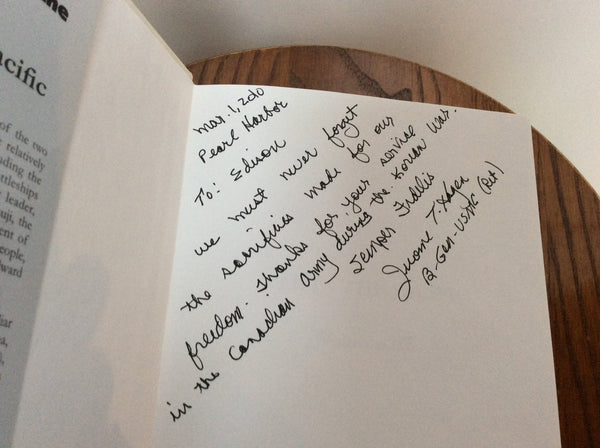 me
cific
of the two
relatively
ding the
ttleships
leader,
uji, the
ent of
eople,
dward
Mar. 1, 2010
Pearl Harbor
To: Edison
We must never forget
the sacrifices made for our
freedom. Thanks for your service
in the Canadian Army during the Korean War.
Semper Fidelis
Jerome T. Hagen
B. Gen. USMC (Ret)